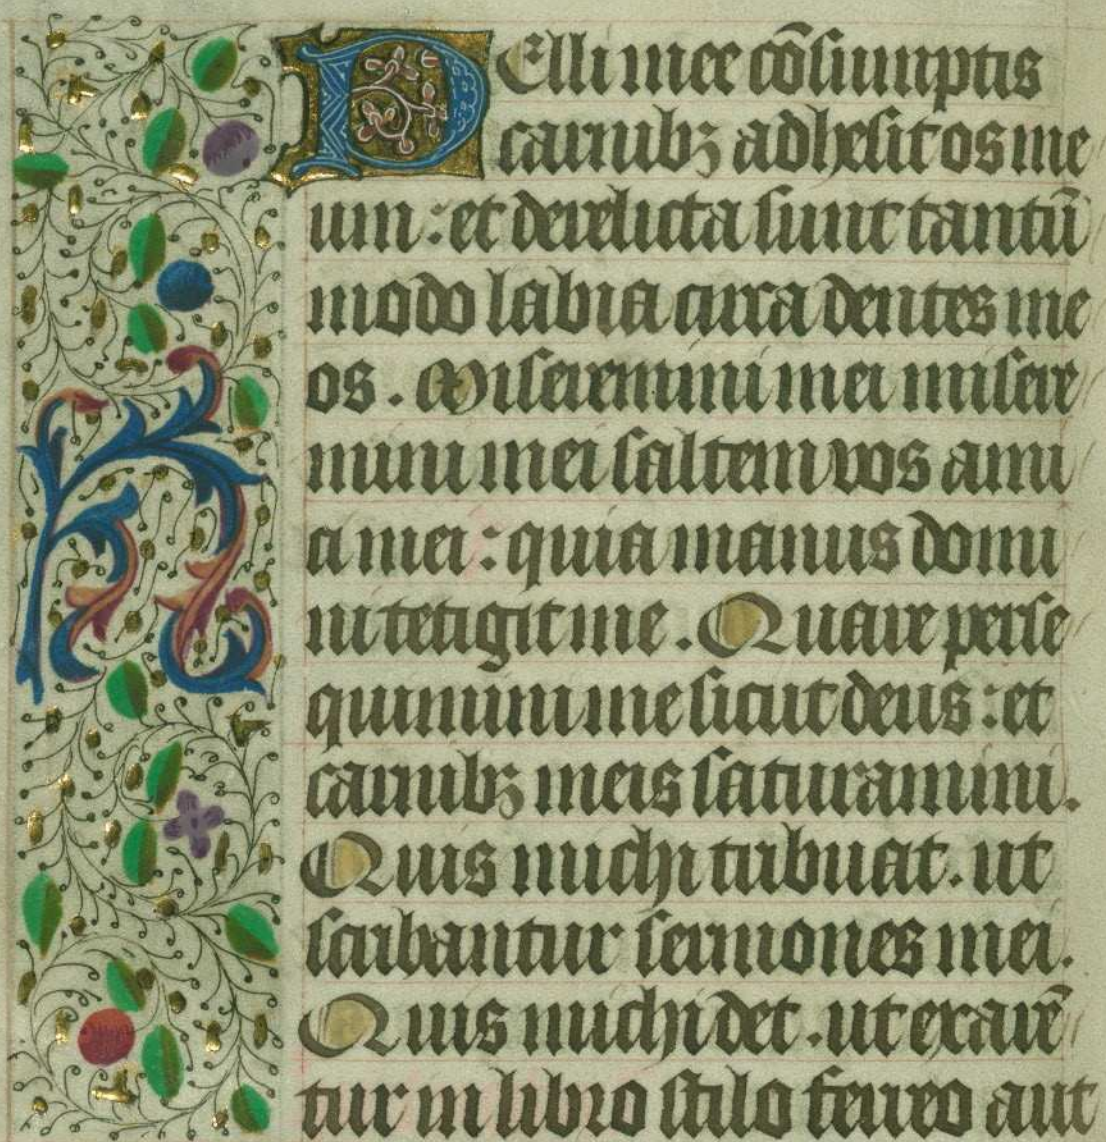 Pelli mee cōsumptis
carnibꝫ adhesit os me
um : et derelicta sunt tantū
modo labia circa dentes me
os . Miseremini mei misere
mini mei saltem vos ami
ci mei : quia manus domi
ni tetigit me . Quare perse
quimini me sicut deus : et
carnibꝫ meis saturamini.
Quis michi tribuat . ut
scribantur sermones mei.
Quis michi det . ut exarē
tur in libro stilo ferreo aut